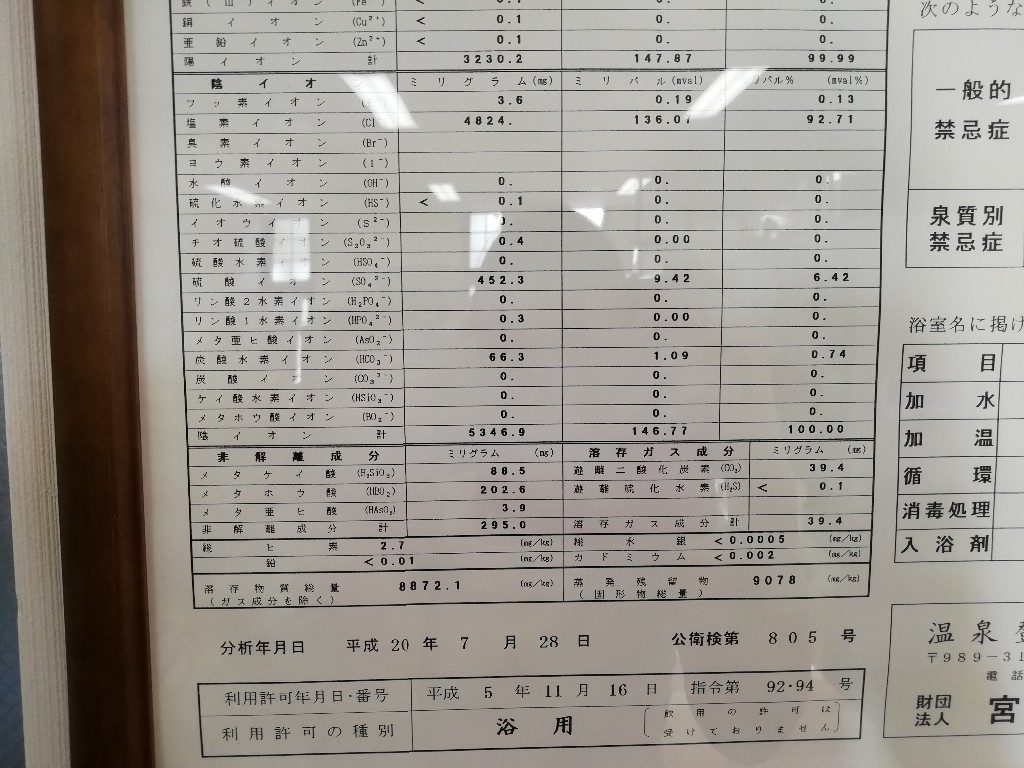 銅イオン (Cu²⁺) < 0.1 0. 0.
亜鉛イオン (Zn²⁺) < 0.1 0. 0.
陽イオン計 3230.2 147.87 99.99
陰イオン ミリグラム(mg) ミリバル(mval) バル% (mval%)
フッ素イオン 3.6 0.19 0.13
塩素イオン (Cl 4824. 136.07 92.71
臭素イオン (Br⁻)
ヨウ素イオン (I⁻)
水酸イオン (OH⁻) 0. 0. 0.
硫化水素イオン (HS⁻) < 0.1 0. 0.
イオウイオン (S²⁻) 0. 0. 0.
チオ硫酸イオン (S₂O₃²⁻) 0.4 0.00 0.
硫酸水素イオン (HSO₄⁻) 0. 0. 0.
硫酸イオン (SO₄²⁻) 452.3 9.42 6.42
リン酸2水素イオン (H₂PO₄⁻) 0. 0. 0.
リン酸1水素イオン (HPO₄²⁻) 0.3 0.00 0.
メタ亜ヒ酸イオン (AsO₂⁻) 0. 0. 0.
炭酸水素イオン (HCO₃⁻) 66.3 1.09 0.74
炭酸イオン (CO₃²⁻) 0. 0. 0.
ケイ酸水素イオン (HSiO₃⁻) 0. 0. 0.
メタホウ酸イオン (BO₂⁻) 0. 0. 0.
陰イオン計 5346.9 146.77 100.00
非解離成分 ミリグラム (mg) 溶存ガス成分 ミリグラム (mg)
メタケイ酸 (H₂SiO₃) 88.5 遊離二酸化炭素 (CO₂) 39.4
メタホウ酸 (HBO₂) 202.6 遊離硫化水素 (H₂S) < 0.1
メタ亜ヒ酸 (HAsO₂) 3.9
非解離成分計 295.0 溶存ガス成分計 39.4
総ヒ素 2.7 (mg/kg) 総水銀 <0.0005 (mg/kg)
鉛 <0.01 (mg/kg) カドミウム <0.002 (mg/kg)
溶存物質総量 8872.1 (mg/kg) 蒸発残留物 9078 (mg/kg)
(ガス成分を除く) (固形物総量)
分析年月日 平成20年7月28日 公衛検第 805 号
利用許可年月日・番号 平成5年11月16日 指令第 92-94 号
利用許可の種別 浴用 飲用の許可は
受けておりません
次のような
一般的
禁忌症
泉質別
禁忌症
浴室名に掲げ
項目
加水
加温
循環
消毒処理
入浴剤
温泉
〒989-31
電話
財団
法人 宮